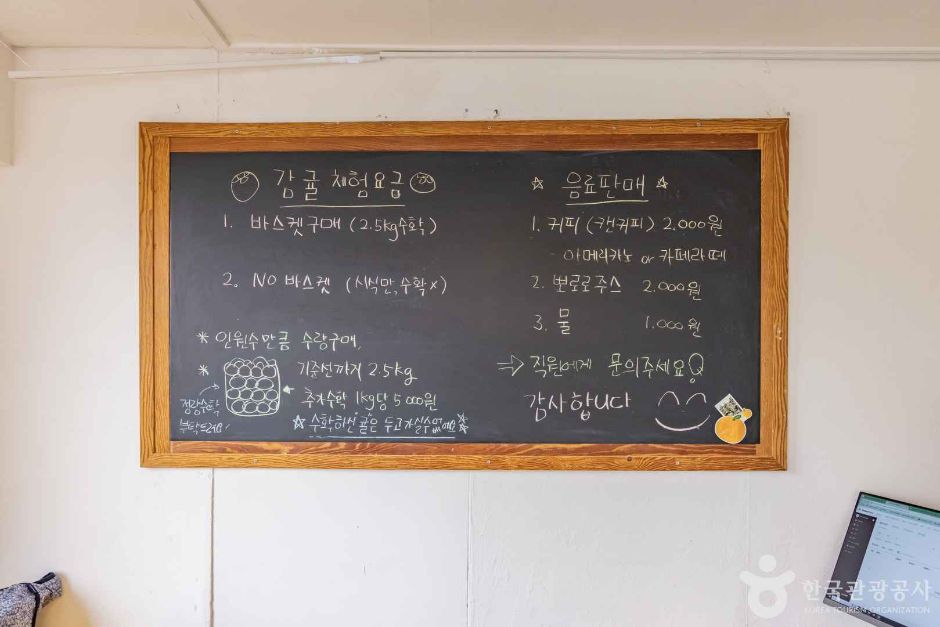 감귤 체험요금
1. 바스켓구매 (2.5kg수확)
2. NO 바스켓 (시식만, 수확x)
* 인원수만큼 수량구매.
* 기준선까지 2.5kg
추가수확 1kg당 5000원
정량수확
부탁드려요!
☆ 수확하신 귤은 두고가실수없어요 ☆
☆ 음료판매 ☆
1. 커피 (캔커피) 2.000원
- 아메리카노 or 카페라떼
2. 뽀로로주스 2.000원
3. 물 1.000원
⇒ 직원에게 문의주세요!
감사합니다
한국관광공사
KOREA TOURISM ORGANIZATION